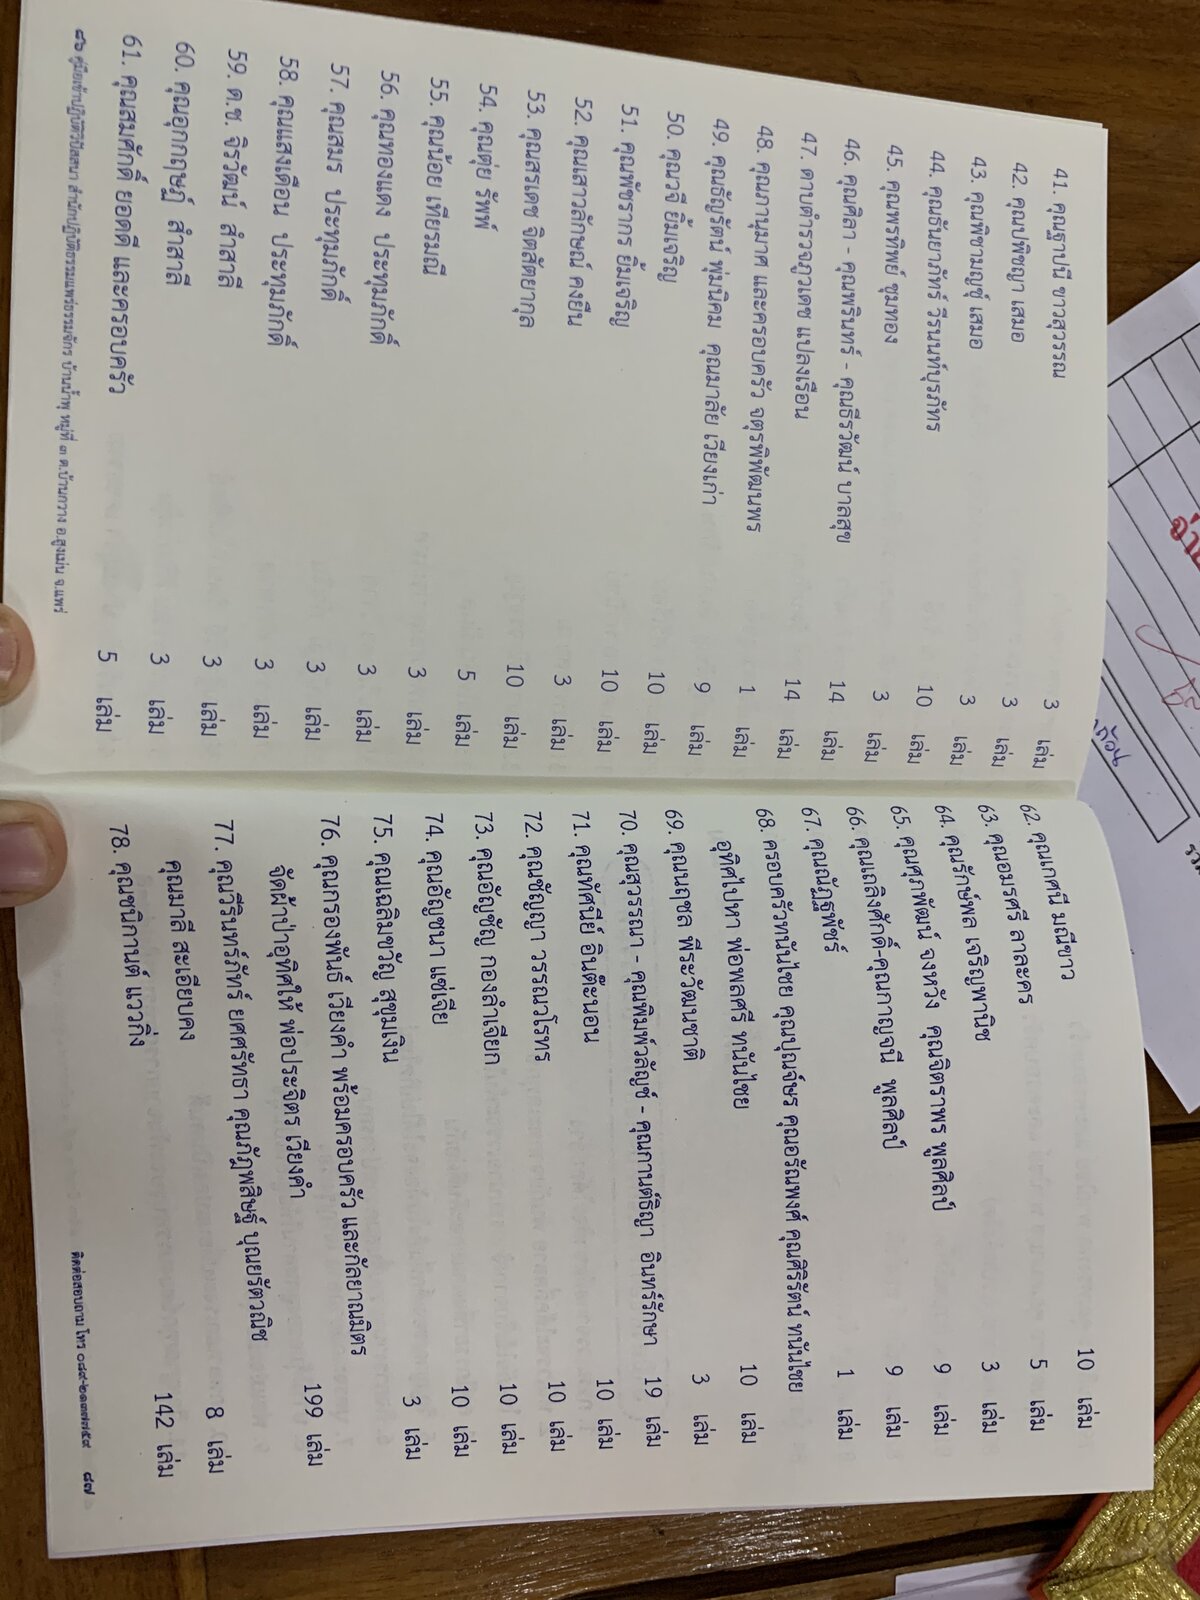 41. คุณฐาปนี ขาวสุวรรณ 3 เล่ม
42. คุณปพิชญา เสมอ 3 เล่ม
43. คุณพิชามญชุ์ เสมอ 3 เล่ม
44. คุณธันยาภัทร์ วีรนนท์บุรภัทร 10 เล่ม
45. คุณพรทิพย์ ชุมทอง 3 เล่ม
46. คุณศิลา - คุณพรินทร์ - คุณธีรวัฒน์ บาลสุข 14 เล่ม
47. ดาบตำรวจภูวเดช แปลงเรือน 14 เล่ม
48. คุณภานุมาศ และครอบครัว จตุรพิพัฒนพร 1 เล่ม
49. คุณธัญรัตน์ พุ่มนิคม คุณมาลัย เวียงเก่า 9 เล่ม
50. คุณวจี ยิ้มเจริญ 10 เล่ม
51. คุณพัชรากร ยิ้มเจริญ 10 เล่ม
52. คุณเสาวลักษณ์ คงยืน 3 เล่ม
53. คุณสรเดช จิตสัตยากุล 10 เล่ม
54. คุณตุ่ย รัพท์ 5 เล่ม
55. คุณน้อย เทียรมณี 3 เล่ม
56. คุณทองแดง ประทุมภักดิ์ 3 เล่ม
57. คุณสมร ประทุมภักดิ์ 3 เล่ม
58. คุณแสงเดือน ประทุมภักดิ์ 3 เล่ม
59. ด.ช. จิรวัฒน์ สำสาลี 3 เล่ม
60. คุณอุกกฤษฎ์ สำสาลี 3 เล่ม
61. คุณสมศักดิ์ ยอดดี และครอบครัว 5 เล่ม
๘๖ คู่มือเข้าปฏิบัติวิปัสสนา สำนักปฏิบัติธรรมแพร่ธรรมจักร บ้านน้ำพุ หมู่ที่ ๓ ต.บ้านกวาง อ.สูงเม่น จ.แพร่
62. คุณเกศนี มณีขาว 10 เล่ม
63. คุณอมรศรี ลาละคร 5 เล่ม
64. คุณรักษ์พล เจริญพานิช 3 เล่ม
65. คุณศุภพัฒน์ จงหวัง คุณจิตราพร พูลศิลป์ 9 เล่ม
66. คุณเถลิงศักดิ์-คุณกาญจนี พูลศิลป์ 9 เล่ม
67. คุณณัฏฐพัชร์ 1 เล่ม
68. ครอบครัวทนันไชย คุณปุณจ์ษร คุณอรัณพงศ์ คุณศิริรัตน์ ทนันไชย
อุทิศไปหา พ่อพลศรี ทนันไชย 10 เล่ม
69. คุณนฤชล พีระวัฒนชาติ 3 เล่ม
70. คุณสุวรรณา - คุณพิมพ์วลัญช์ - คุณกานต์ธิญา อินทร์รักษา 19 เล่ม
71. คุณทัศนีย์ อินต๊ะนอน 10 เล่ม
72. คุณชัญญา วรรณวโรทร 10 เล่ม
73. คุณอัญชัญ กองลำเจียก 10 เล่ม
74. คุณอัญชนา แซ่เจีย 10 เล่ม
75. คุณเฉลิมขวัญ สุขุมเงิน 3 เล่ม
76. คุณกรองพันธ์ เวียงคำ พร้อมครอบครัว และกัลยาณมิตร
จัดผ้าป่าอุทิศให้ พ่อประจิตร เวียงคำ 199 เล่ม
77. คุณวิรินทร์ภัทร์ ยศศรัทธา คุณภัฏพลิษฐ์ บุณยรัตวณิช
คุณมาลี สะเอียบคง 8 เล่ม
78. คุณชนิกานต์ แวววกิ่ง 142 เล่ม
ติดต่อสอบถาม โทร ๐๘๙-๒๑๓๗๗๕๙ ๘๗